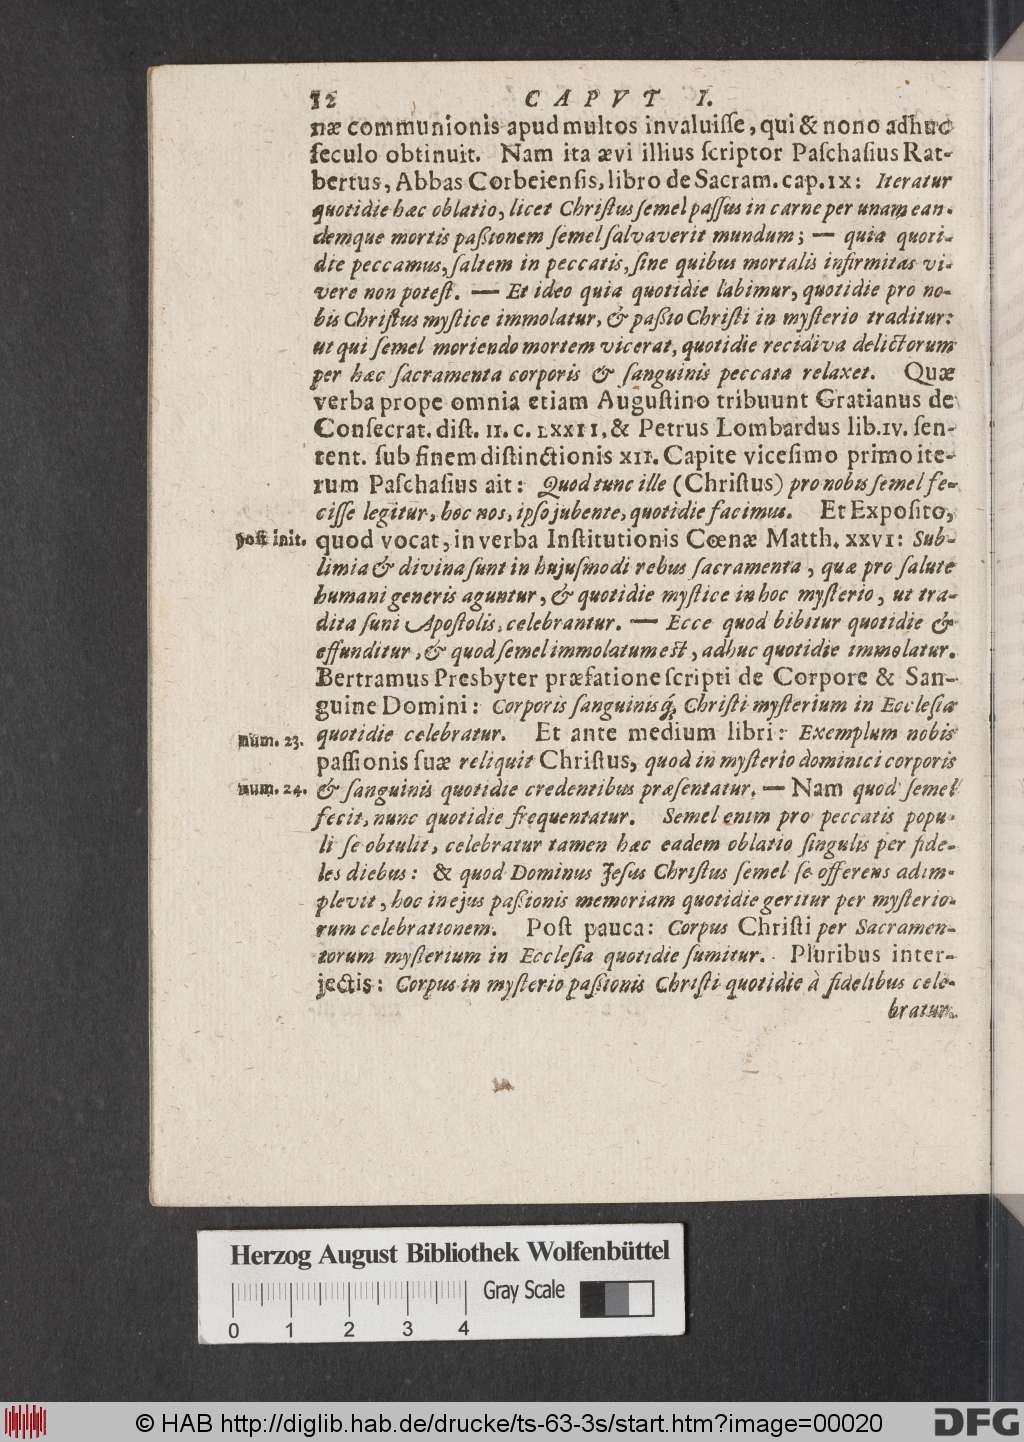 12 CAPVT I.
næ communionis apud multos invaluiſſe, qui & nono adhuc
ſeculo obtinuit. Nam ita ævi illius ſcriptor Paſchaſius Rat-
bertus, Abbas Corbeienſis, libro de Sacram. cap. IX: Iteratur
quotidie hæc oblatio, licet Chriſtus ſemel paſſus in carne per unam ean-
demque mortis paßionem ſemel ſalvaverit mundum; — quia quoti-
die peccamus, ſaltem in peccatis, ſine quibus mortalis infirmitas vi-
vere non poteſt. — Et ideo quia quotidie labimur, quotidie pro no-
bis Chriſtus myſtice immolatur, & paßio Chriſti in myſterio traditur:
ut qui ſemel moriendo mortem vicerat, quotidie recidiva delictorum
per hæc ſacramenta corporis & ſanguinis peccata relaxet. Quæ
verba prope omnia etiam Auguſtino tribuunt Gratianus de
Conſecrat. diſt. II. c. LXXII, & Petrus Lombardus lib. IV. ſen-
tent. ſub finem diſtinctionis XII. Capite viceſimo primo ite-
rum Paſchaſius ait: Quod tunc ille (Chriſtus) pro nobis ſemel fe-
ciſſe legitur, hoc nos, ipſo jubente, quotidie facimus. Et Expoſito,
poſt init. quod vocat, in verba Inſtitutionis Cœnæ Matth. XXVI: Sub-
limia & divina ſunt in hujuſmodi rebus ſacramenta, quæ pro ſalute
humani generis aguntur, & quotidie myſtice in hoc myſterio, ut tra-
dita ſunt Apoſtolis, celebrantur. — Ecce quod bibitur quotidie &
effunditur, & quod ſemel immolatum eſt, adhuc quotidie immolatur.
Bertramus Presbyter præfatione ſcripti de Corpore & San-
guine Domini: Corporis ſanguinisq́; Chriſti myſterium in Eccleſia
num. 23. quotidie celebratur. Et ante medium libri: Exemplum nobis
paſſionis ſuæ reliquit Chriſtus, quod in myſterio dominici corporis
num. 24. & ſanguinis quotidie credentibus præſentatur. — Nam quod ſemel
fecit, nunc quotidie frequentatur. Semel enim pro peccatis popu-
li ſe obtulit, celebratur tamen hæc eadem oblatio ſingulis per fide-
les diebus: & quod Dominus Jeſus Chriſtus ſemel ſe offerens adim-
plevit, hoc in ejus paßionis memoriam quotidie geritur per myſterio-
rum celebrationem. Poſt pauca: Corpus Chriſti per Sacramen-
torum myſterium in Eccleſia quotidie ſumitur. Pluribus inter-
jectis: Corpus in myſterio paßionis Chriſti quotidie à fidelibus cele-
bratum.
Herzog August Bibliothek Wolfenbüttel
Gray Scale
0 1 2 3 4
© HAB http://diglib.hab.de/drucke/ts-63-3s/start.htm?image=00020
DFG